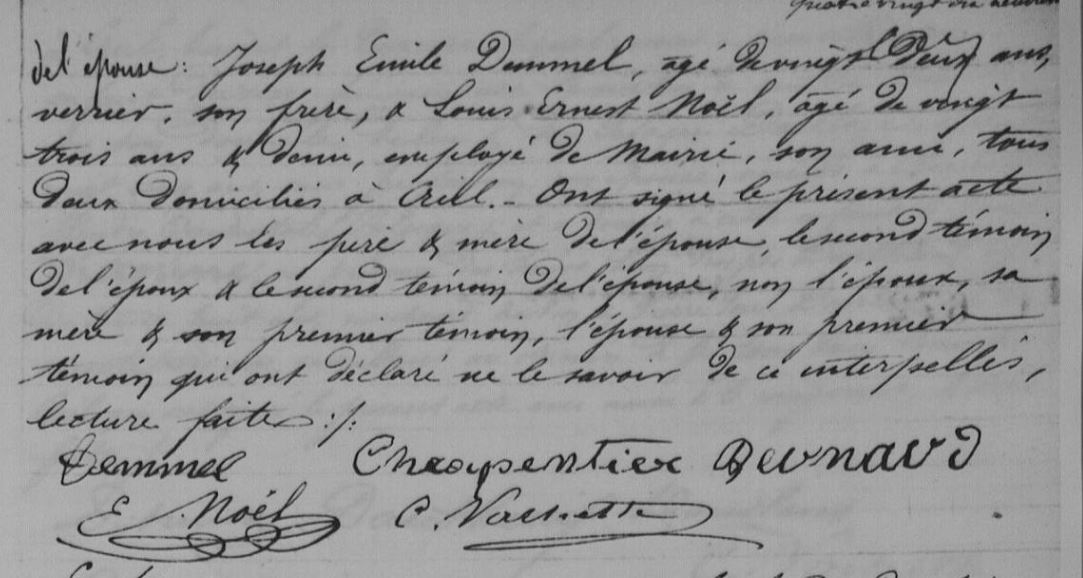 quatre vingt dix
de l'épouse : Joseph Emile Demmel, agé de vingt deux ans,
verrier, son frère, & Louis Ernest Noël, âgé de vingt
trois ans & demi, employé de Mairie, son ami, tous
deux domiciliés à Creil. - Ont signé le présent acte
avec nous les père & mère de l'épouse, le second témoin
de l'époux & le second témoin de l'épouse, non l'époux, sa
mère & son premier témoin, l'épouse & son premier
témoin qui ont déclaré ne le savoir de ce interpellés,
lecture faite :/:
Demmel Charpentier Bernard
E. Noël C. Vachette